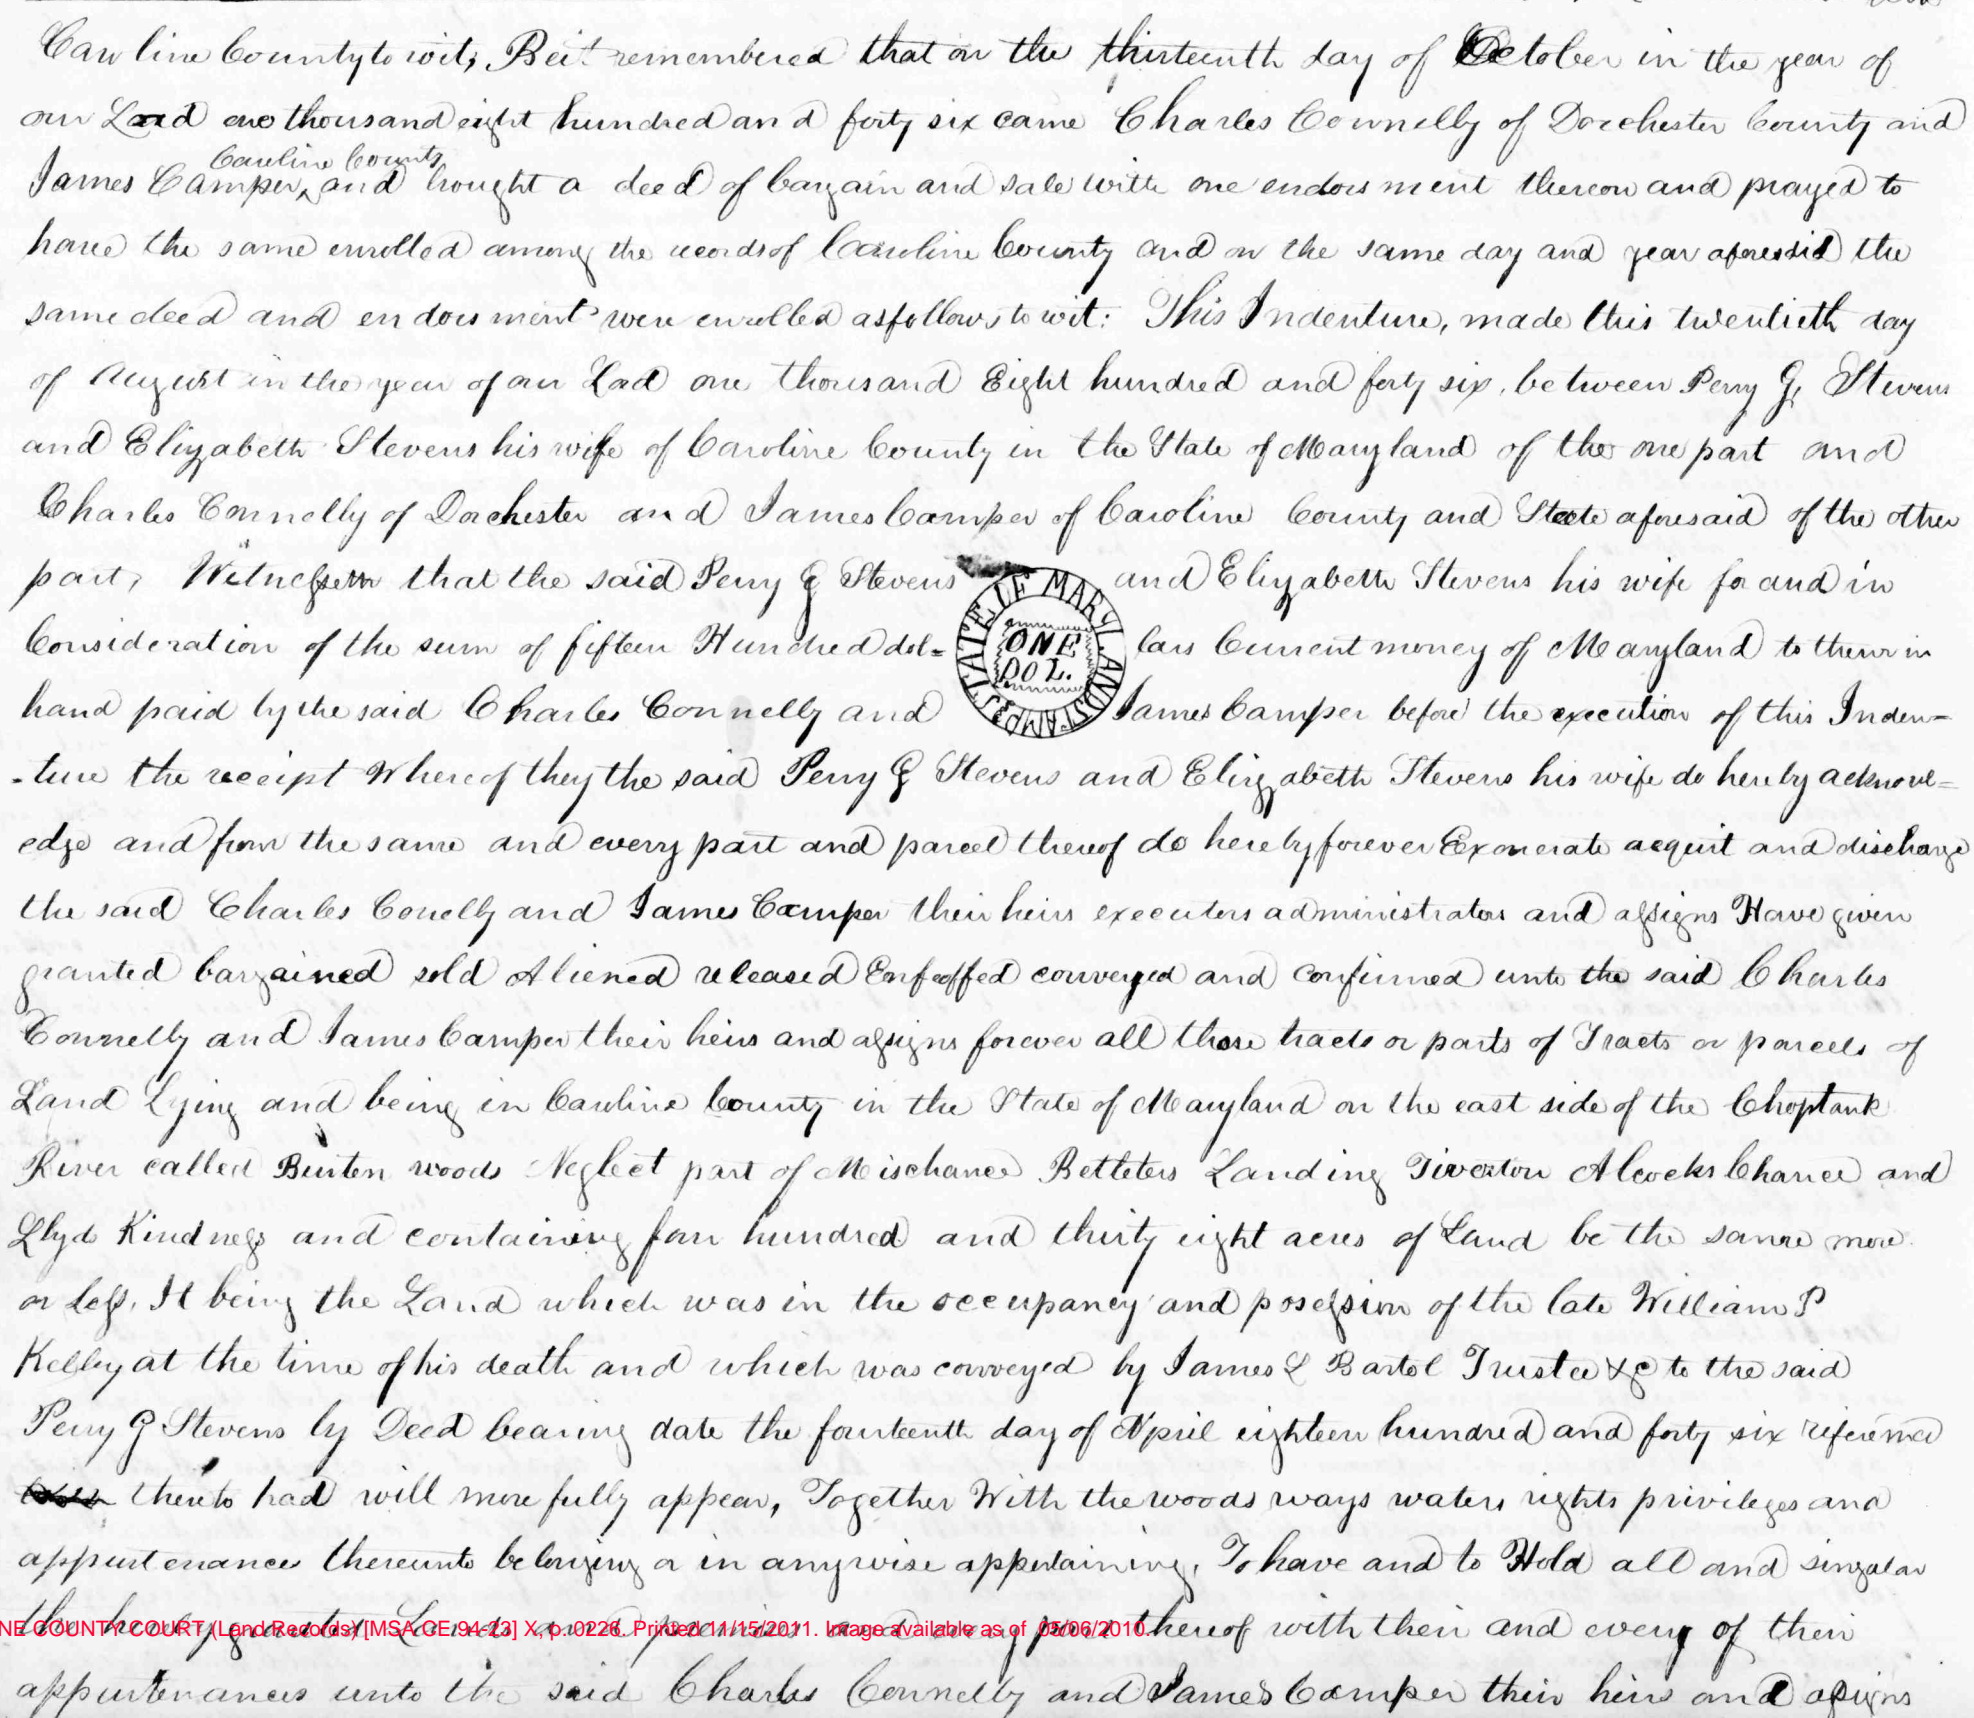 Caroline County to wit; Be it remembered that on the thirteenth day of October in the year of
our Lord one thousand eight hundred and forty six came Charles Connelly of Dorchester County and
Caroline County
James Camper, ^ and brought a deed of bargain and sale with one endorsment thereon and prayed to
have the same enrolled among the records of Caroline County and on the same day and year aforesaid the
same deed and endorsment were enrolled as follows to wit: This Indenture, made this twentieth day
of August in the year of our Lord one thousand Eight hundred and forty six, between Perry G, Stevens
and Elizabeth Stevens his wife of Caroline County in the State of Maryland of the one part and
Charles Connelly of Dorchester and James Camper of Caroline County and State aforesaid of the other
part, Witnesseth that the said Perry G Stevens and Elizabeth Stevens his wife for and in
Consideration of the sum of fifteen Hundred dol= lars Current money of Maryland to them in
STATE OF MARYLAND STAMPS
ONE
DOL.
hand paid by the said Charles Connelly and James Camper before the execution of this Inden=
-ture the receipt Whereof they the said Perry G Stevens and Elizabeth Stevens his wife do hereby acknowl=
edge and from the same and every part and parcel thereof do hereby forever Exonerate acquit and discharge
the said Charles Conelly and James Camper their heirs executors administrators and assigns Have given
granted bargained sold Aliened released Enfeoffed conveyed and confirmed unto the said Charles
Connelly and James Camper their heirs and assigns forever all those tracts or parts of Tracts or parcels of
Land Lying and being in Caroline County in the State of Maryland on the east side of the Choptank
River called Burten woods Neglect part of Mischance Betteters Landing Tiverton Alcocks Chance and
Llyds Kindness and containing four hundred and thirty eight acres of Land be the same more
or less. It being the Land which was in the occupancy and posession of the late William P
Kelley at the time of his death and which was conveyed by James L Bartol Trustee &c to the said
Perry G Stevens by Deed bearing date the fourteenth day of April eighteen hundred and forty six reference
thereto had will more fully appear, Together With the woods ways waters rights privileges and
appurtenances thereunto belonging or in anywise appertaining, To have and to Hold all and singular
the hereby granted Lands and premises and every part thereof with their and every of their
NE COUNTY COURT (Land Records) [MSA CE 94-23] X, p. 0226. Printed 11/15/2011. Image available as of 05/06/2010.
appurtenances unto the said Charles Connelly and James Camper their heirs and assigns